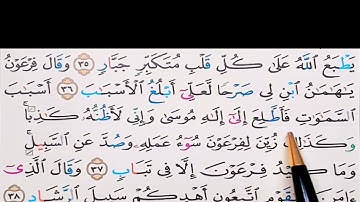 يَطْبَعُ اللَّهُ عَلَىٰ كُلِّ قَلْبِ مُتَكَبِّرٍ جَبَّارٍ ٣٥ وَقَالَ فِرْعَوْنُ
يَٰهَٰمَٰنُ ابْنِ لِي صَرْحًا لَّعَلِّي أَبْلُغُ الْأَسْبَٰبَ ٣٦ أَسْبَٰبَ
السَّمَٰوَٰتِ فَأَطَّلِعَ إِلَىٰ إِلَٰهِ مُوسَىٰ وَإِنِّي لَأَظُنُّهُۥ كَٰذِبًا ۚ
وَكَذَٰلِكَ زُيِّنَ لِفِرْعَوْنَ سُوٓءُ عَمَلِهِۦ وَصُدَّ عَنِ السَّبِيلِ ۚ
وَمَا كَيْدُ فِرْعَوْنَ إِلَّا فِي تَبَابٍ ٣٧ وَقَالَ الَّذِيٓ
ءَامَنَ يَٰقَوْمِ اتَّبِعُونِ أَهْدِكُمْ سَبِيلَ الرَّشَادِ ٣٨